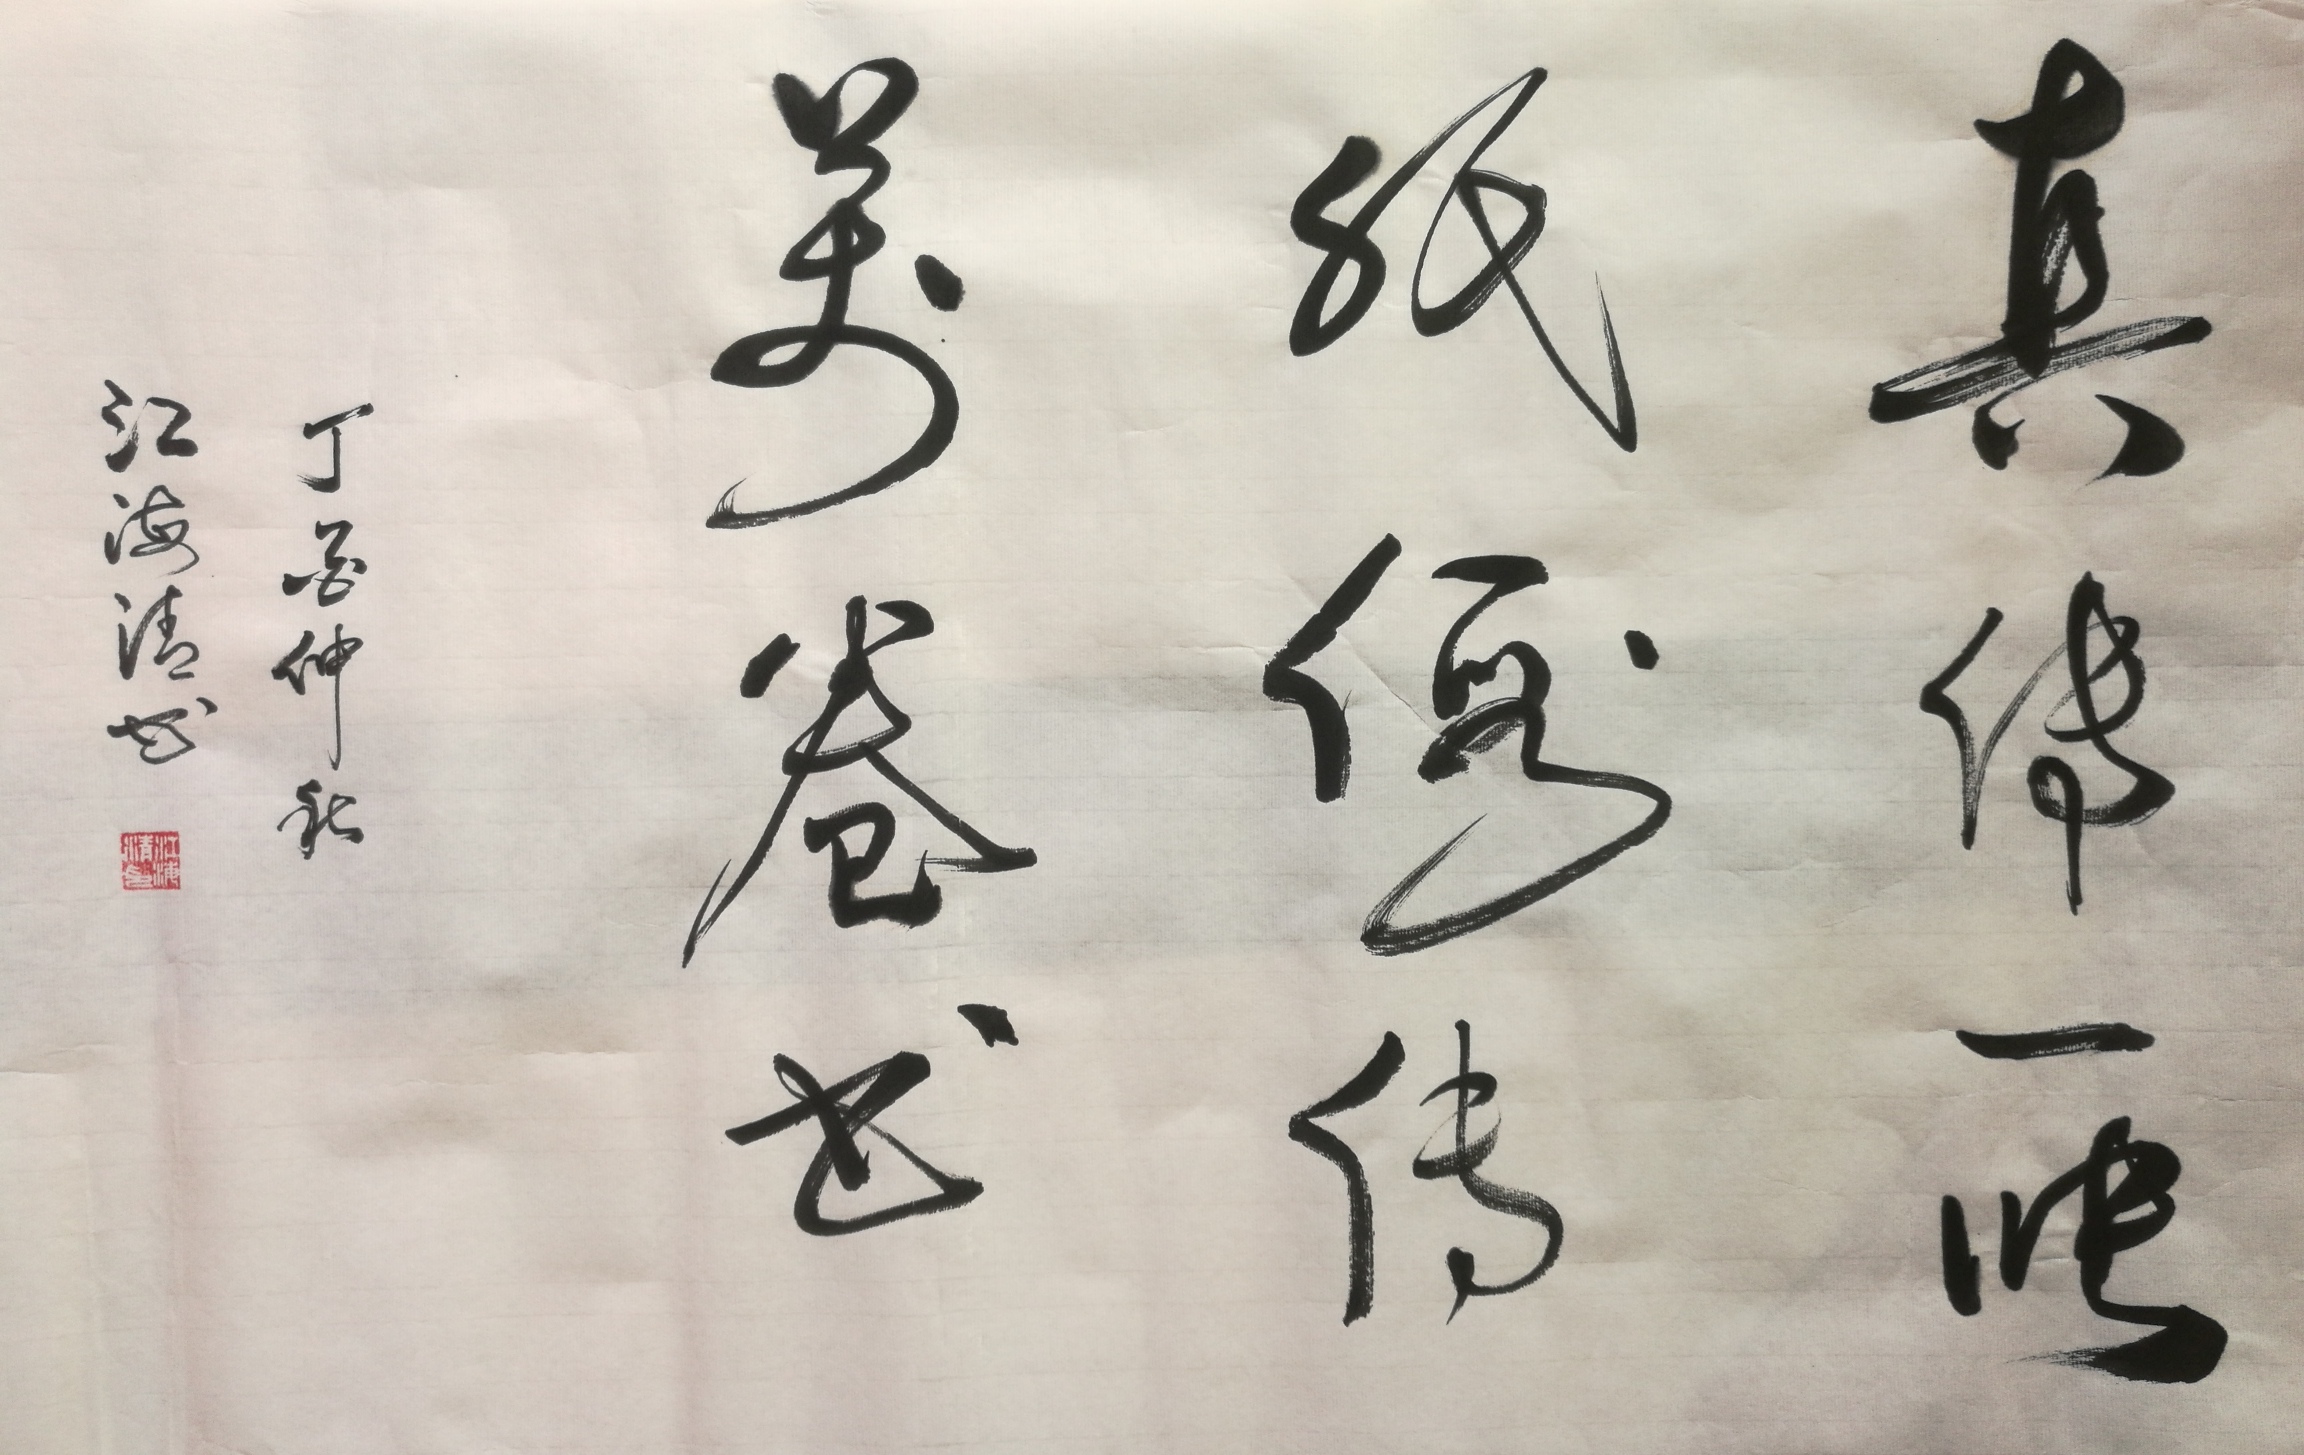 真傳一張
紙假傳
萬卷書
丁酉仲秋
江海清書
江海清印